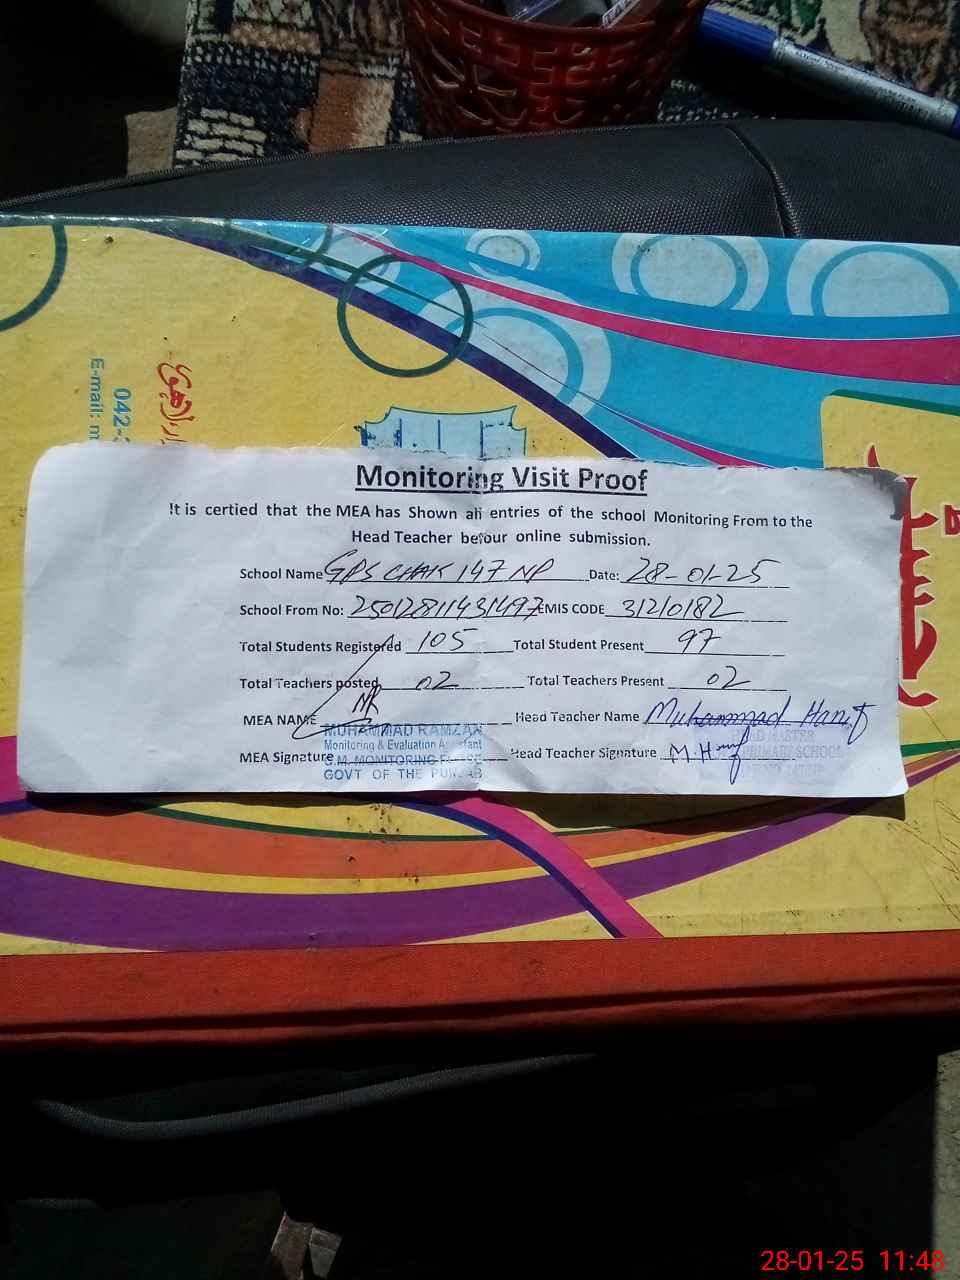 042-
E-mail: m
Monitoring Visit Proof
It is certied that the MEA has Shown all entries of the school Monitoring From to the
Head Teacher befour online submission.
School Name GPS CHAK 147 NP Date: 28-01-25
School From No: 25012811431497 EMIS CODE 31210182
Total Students Registered 105 Total Student Present 97
Total Teachers posted 02 Total Teachers Present 02
MEA NAME Head Teacher Name Muhammad Hanif
MUHAMMAD RAMZAN
Monitoring & Evaluation Assistant
GOVT OF THE PUNJAB
MEA Signature Head Teacher Signature M. Hanif
HEAD MASTER
PRIMARY SCHOOL
28-01-25 11:48